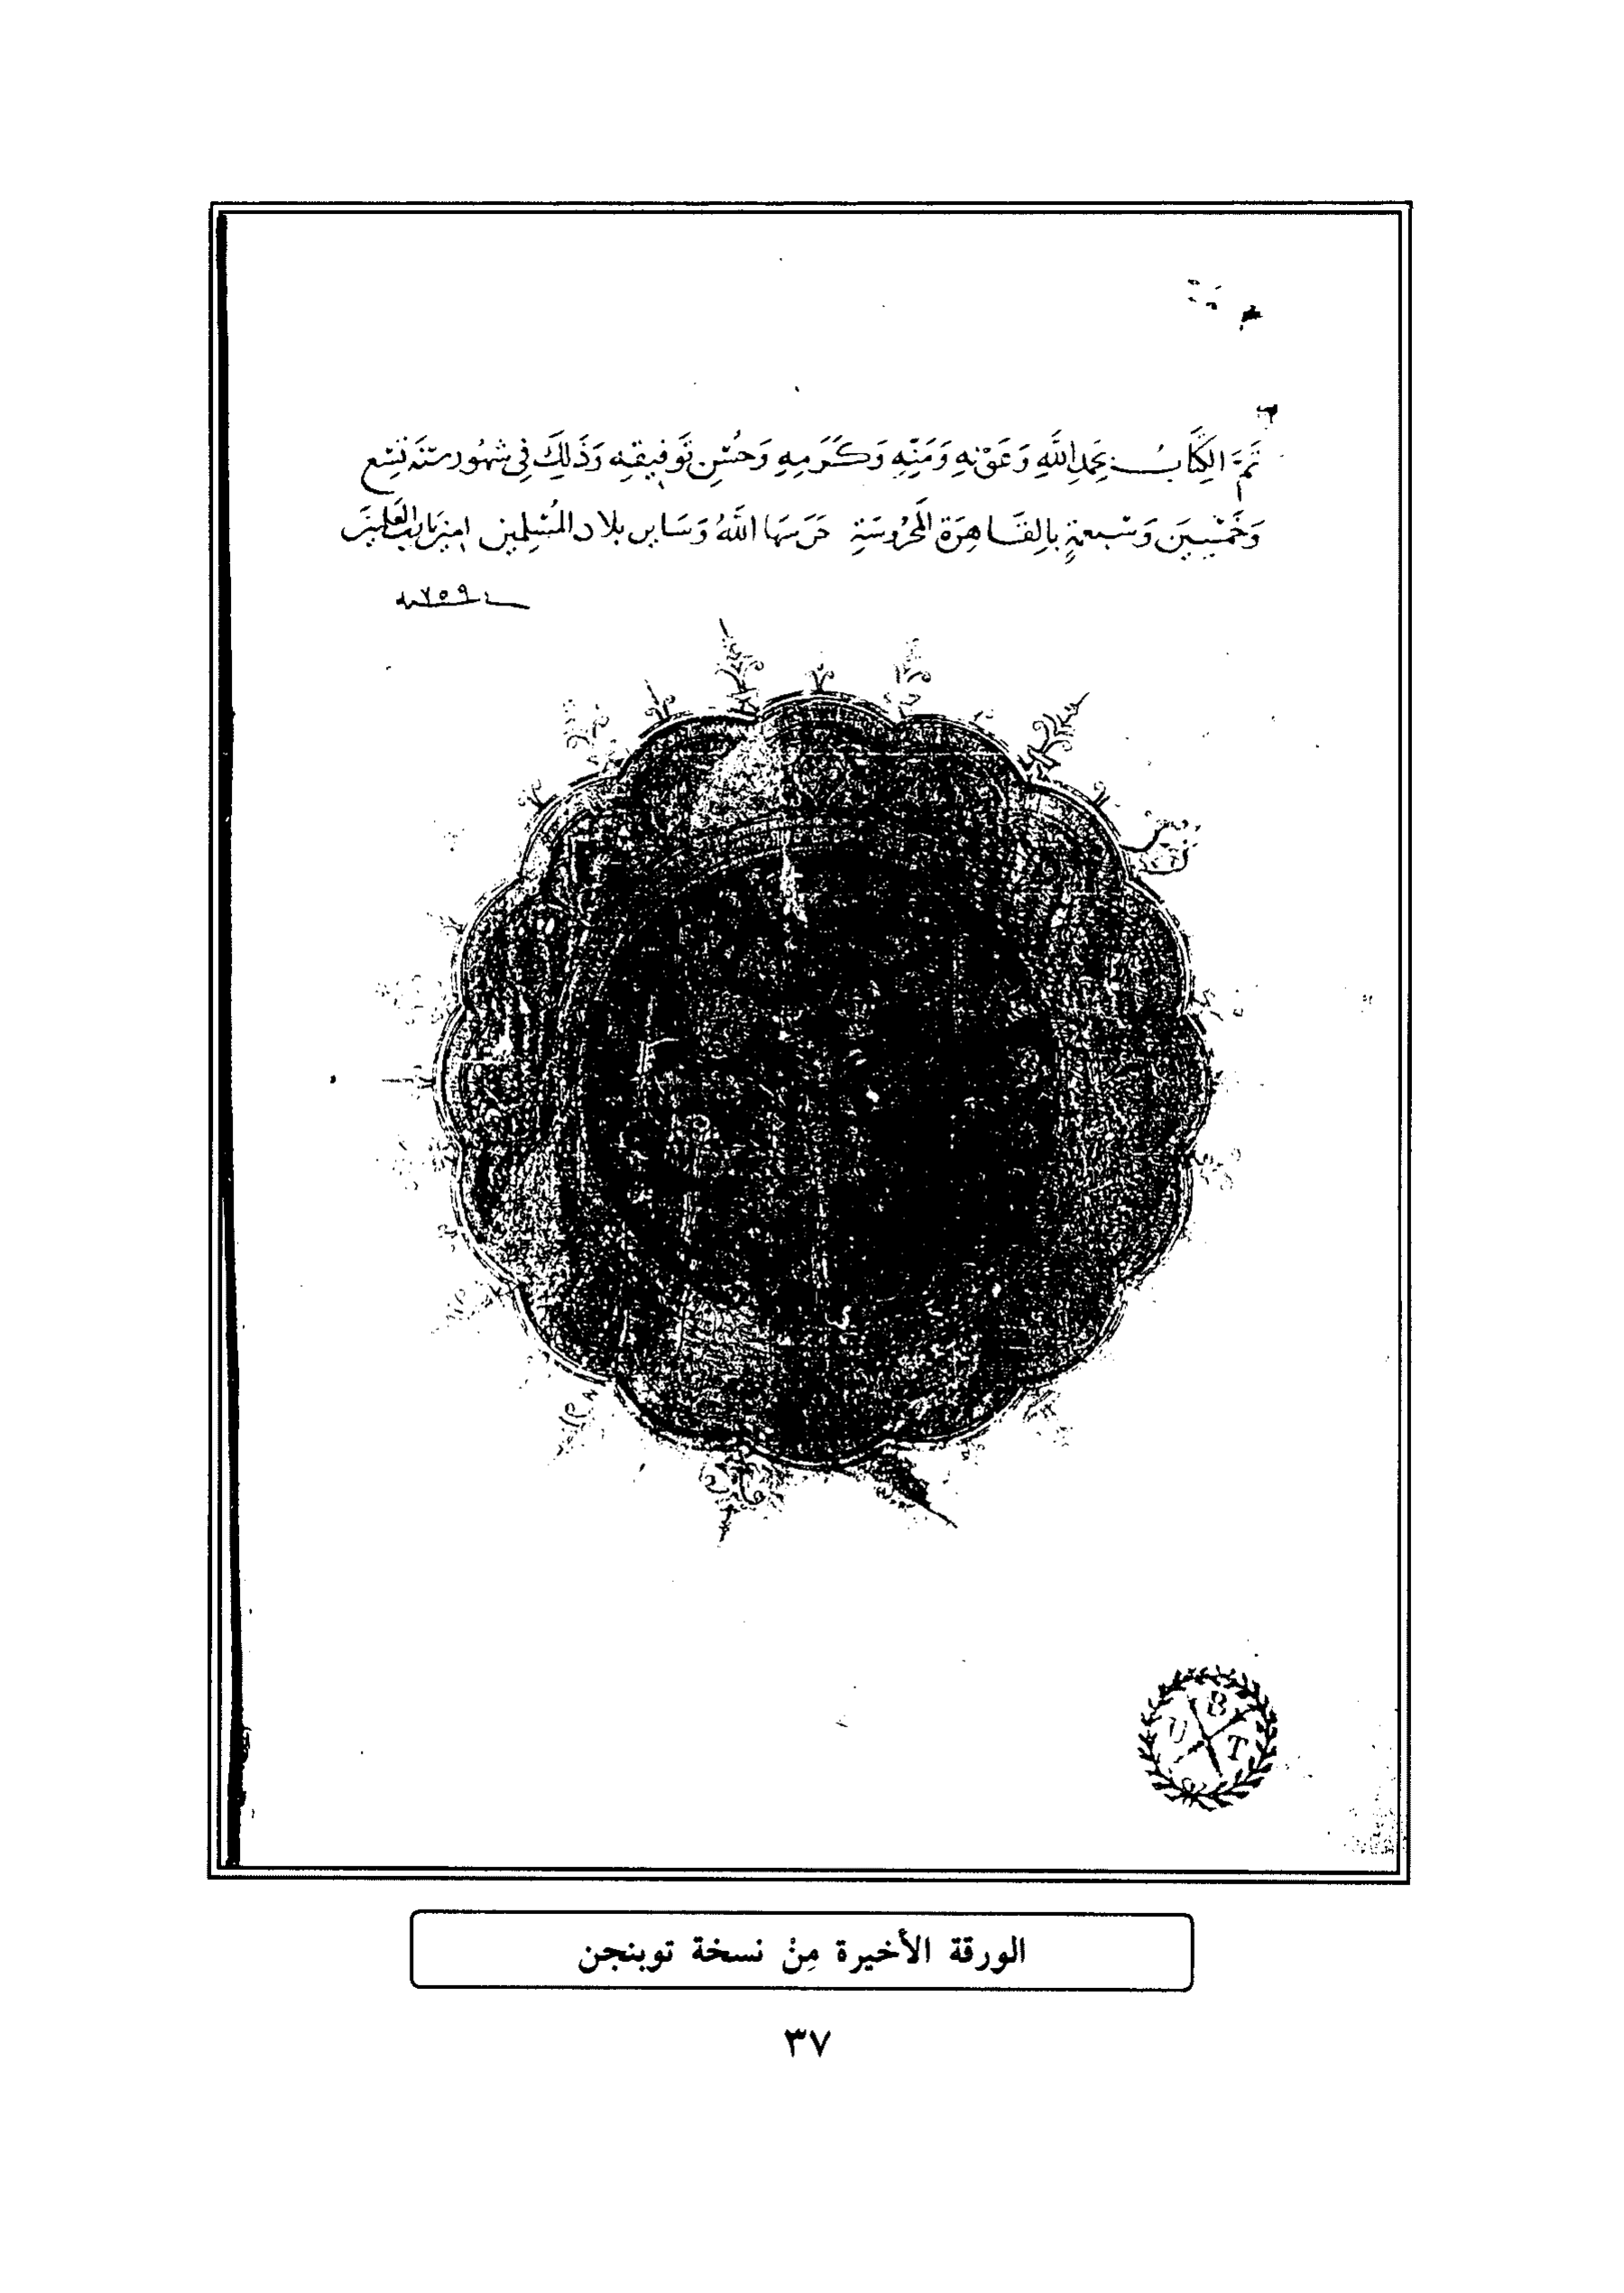 تَمَّ الكِتَابُ بِحَمدِ اللَّهِ وَعَوْنِهِ وَمَنِّهِ وَكَرَمِهِ وَحُسْنِ تَوفِيقِهِ وَذَلِكَ فِي شهُور سَنَة تِسْع
وَخَمْسِينَ وَسَبْعمَةٍ بِالقَاهِرَة المَحْرُوسَةِ حَرَسَهَا اللَّهُ وَسَايِر بلاد المُسْلِمِين امِين يَا رَبَّ العَالَمِينَ
٧٥٩
U B T
الورقة الأخيرة مِنْ نسخة توبنجن
٣٧